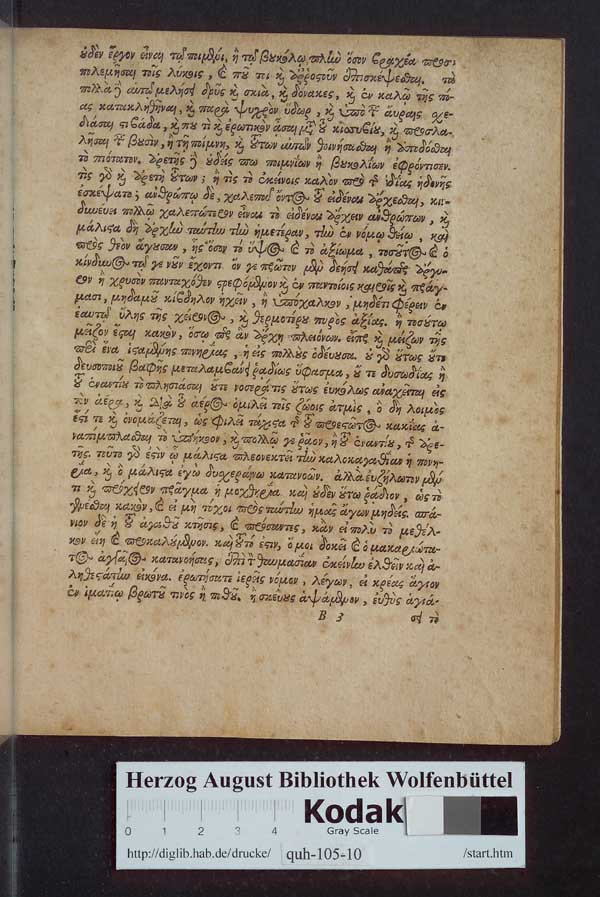 οὐδὲν ἔργον εἶναι τῷ ποιμένι, ἢ τῷ βουκόλῳ πλὴν ὅσον βραχέα προσ-
πολεμῆσαι τοῖς λύκοις, καὶ πού τι καὶ ἀῤῥωστοῦν ἐπισκέψεσθαι. τὰ
πολλὰ δὲ αὐτῷ μελήσει δρῦς καὶ σκιὰ, καὶ δόνακες, καὶ ἐν καλῷ τῆς πό-
ας κατακλιθῆναι, καὶ παρὰ ψυχρὸν ὕδωρ, καὶ ὑπὸ ταῖς αὔραις σχε-
διάσαι στιβάδα, καὶ πού τι καὶ ἐρωτικὸν ᾆσαι μετὰ τοῦ κισσυβίου, καὶ προσλα-
λῆσαι τοῖς βουσὶν, ἢ τῇ ποίμνῃ, καὶ τούτων αὐτῶν θοινήσασθαι ἢ ἀποδόσθαι
τὸ πιότατον. ἀρετῆς δὲ οὐδείς πω ποιμνίων ἢ βουκολίων ἐφρόντισεν.
τίς γὰρ καὶ ἀρετὴ τούτων; ἢ τίς τὸ ἐκείνοις καλὸν πρὸ τῆς ἰδίας ἡδονῆς
ἐσκέψατο; ἀνθρώπῳ δὲ, χαλεποῦ ὄντος τοῦ εἰδέναι ἄρχεσθαι, κιν-
δυνεύει πολλῷ χαλεπώτερον εἶναι τὸ εἰδέναι ἄρχειν ἀνθρώπων, καὶ
μάλιστα δὴ ἀρχὴν ταύτην τὴν ἡμετέραν, τὴν ἐν νόμῳ θείῳ, καὶ
πρὸς θεὸν ἄγουσαν, ἧς ὅσον τὸ ὕψος καὶ τὸ ἀξίωμα, τοσοῦτος καὶ ὁ
κίνδυνος τῷ γε νοῦν ἔχοντι. ὃν γε πρῶτον μὲν δεήσει καθάπερ ἄργυ-
ρον ἢ χρυσὸν πανταχόθεν στρεφόμενον καὶ ἐν παντοίοις καιροῖς καὶ πράγ-
μασι, μηδαμοῦ κίβδηλον ἠχεῖν, ἢ ὑπόχαλκον, μηδέ τι φέρειν ἐν
ἑαυτῷ ὕλης τῆς χείρονος, καὶ θερμοτέρου πυρὸς ἀξίας. ἢ τοσούτῳ
μεῖζον ἔσται κακὸν, ὅσῳ περ ἂν ἄρχῃ πλειόνων. εἴπερ καὶ μείζων τῆς
περὶ ἕνα ἱσταμένης πονηρίας, ἡ εἰς πολλοὺς ὁδεύουσα. οὐ γὰρ οὕτως οὔτε
δευσοποιοῦ βαφῆς μεταλαμβάνει ῥᾳδίως ὕφασμα, οὔ τε δυσωδίας ἢ
τοῦ ἐναντίου τὸ πλησιάσαι οὔτε νοσερά τις οὕτως εὐκόλως ἀναχεῖται εἰς
τὸν ἀέρα, καὶ διὰ τοῦ ἀέρος ὁμιλεῖ τοῖς ζώοις ἀτμὶς, ὃ δὴ λοιμὸς
ἐστί τε καὶ ὀνομάζεται, ὡς φιλεῖ τάχιστα τῆς τοῦ προεστῶτος κακίας ἀ-
ναπίμπλασθαι τὸ ὑπήκοον, καὶ πολλῷ γε ῥᾷον, ἢ τοῦ ἐναντίου, τῆς ἀρε-
τῆς. τοῦτο γάρ ἐστιν ᾧ μάλιστα πλεονεκτεῖ τὴν καλοκαγαθίαν ἡ πονη-
ρία, καὶ ὃ μάλιστα ἐγὼ δυσχεραίνω κατανοῶν. ἀλλὰ εὐζήλωτον μέν
τι καὶ πρόχειρον πρᾶγμα ἡ μοχθηρία καὶ οὐδὲν οὕτω ῥᾴδιον, ὡς τὸ
γενέσθαι κακὸν, καὶ εἰ μὴ τύχοι πρὸς ταύτην ἡμᾶς ἄγων μηδείς. σπά-
νιον δὲ ἡ τοῦ ἀγαθοῦ κτῆσις, καὶ πρόσαντες, κἂν εἰ πολὺ τὸ μεθέλ-
κον εἴη καὶ προκαλούμενον. καὶ τοῦτό ἐστιν, ὅ μοι δοκεῖ καὶ ὁ μακαριώτα-
τος ἀγγαῖος κατανοήσας, ἐπὶ τὴν θαυμασίαν ἐκείνην ἐλθεῖν καὶ ἀ-
ληθεστάτην εἰκόνα. ἐρωτήσατε ἱερεῖς νόμον, λέγων, εἰ κρέας ἅγιον
ἐν ἱματίῳ βρωτοῦ τινὸς ἢ ποτοῦ. ἢ σκεύους ἁψάμενον, εὐθὺς ἁγιά-
B 3 σει τὸ
Herzog August Bibliothek Wolfenbüttel
0 1 2 3 4
Kodak
Gray Scale
http://diglib.hab.de/drucke/ quh-105-10 /start.htm